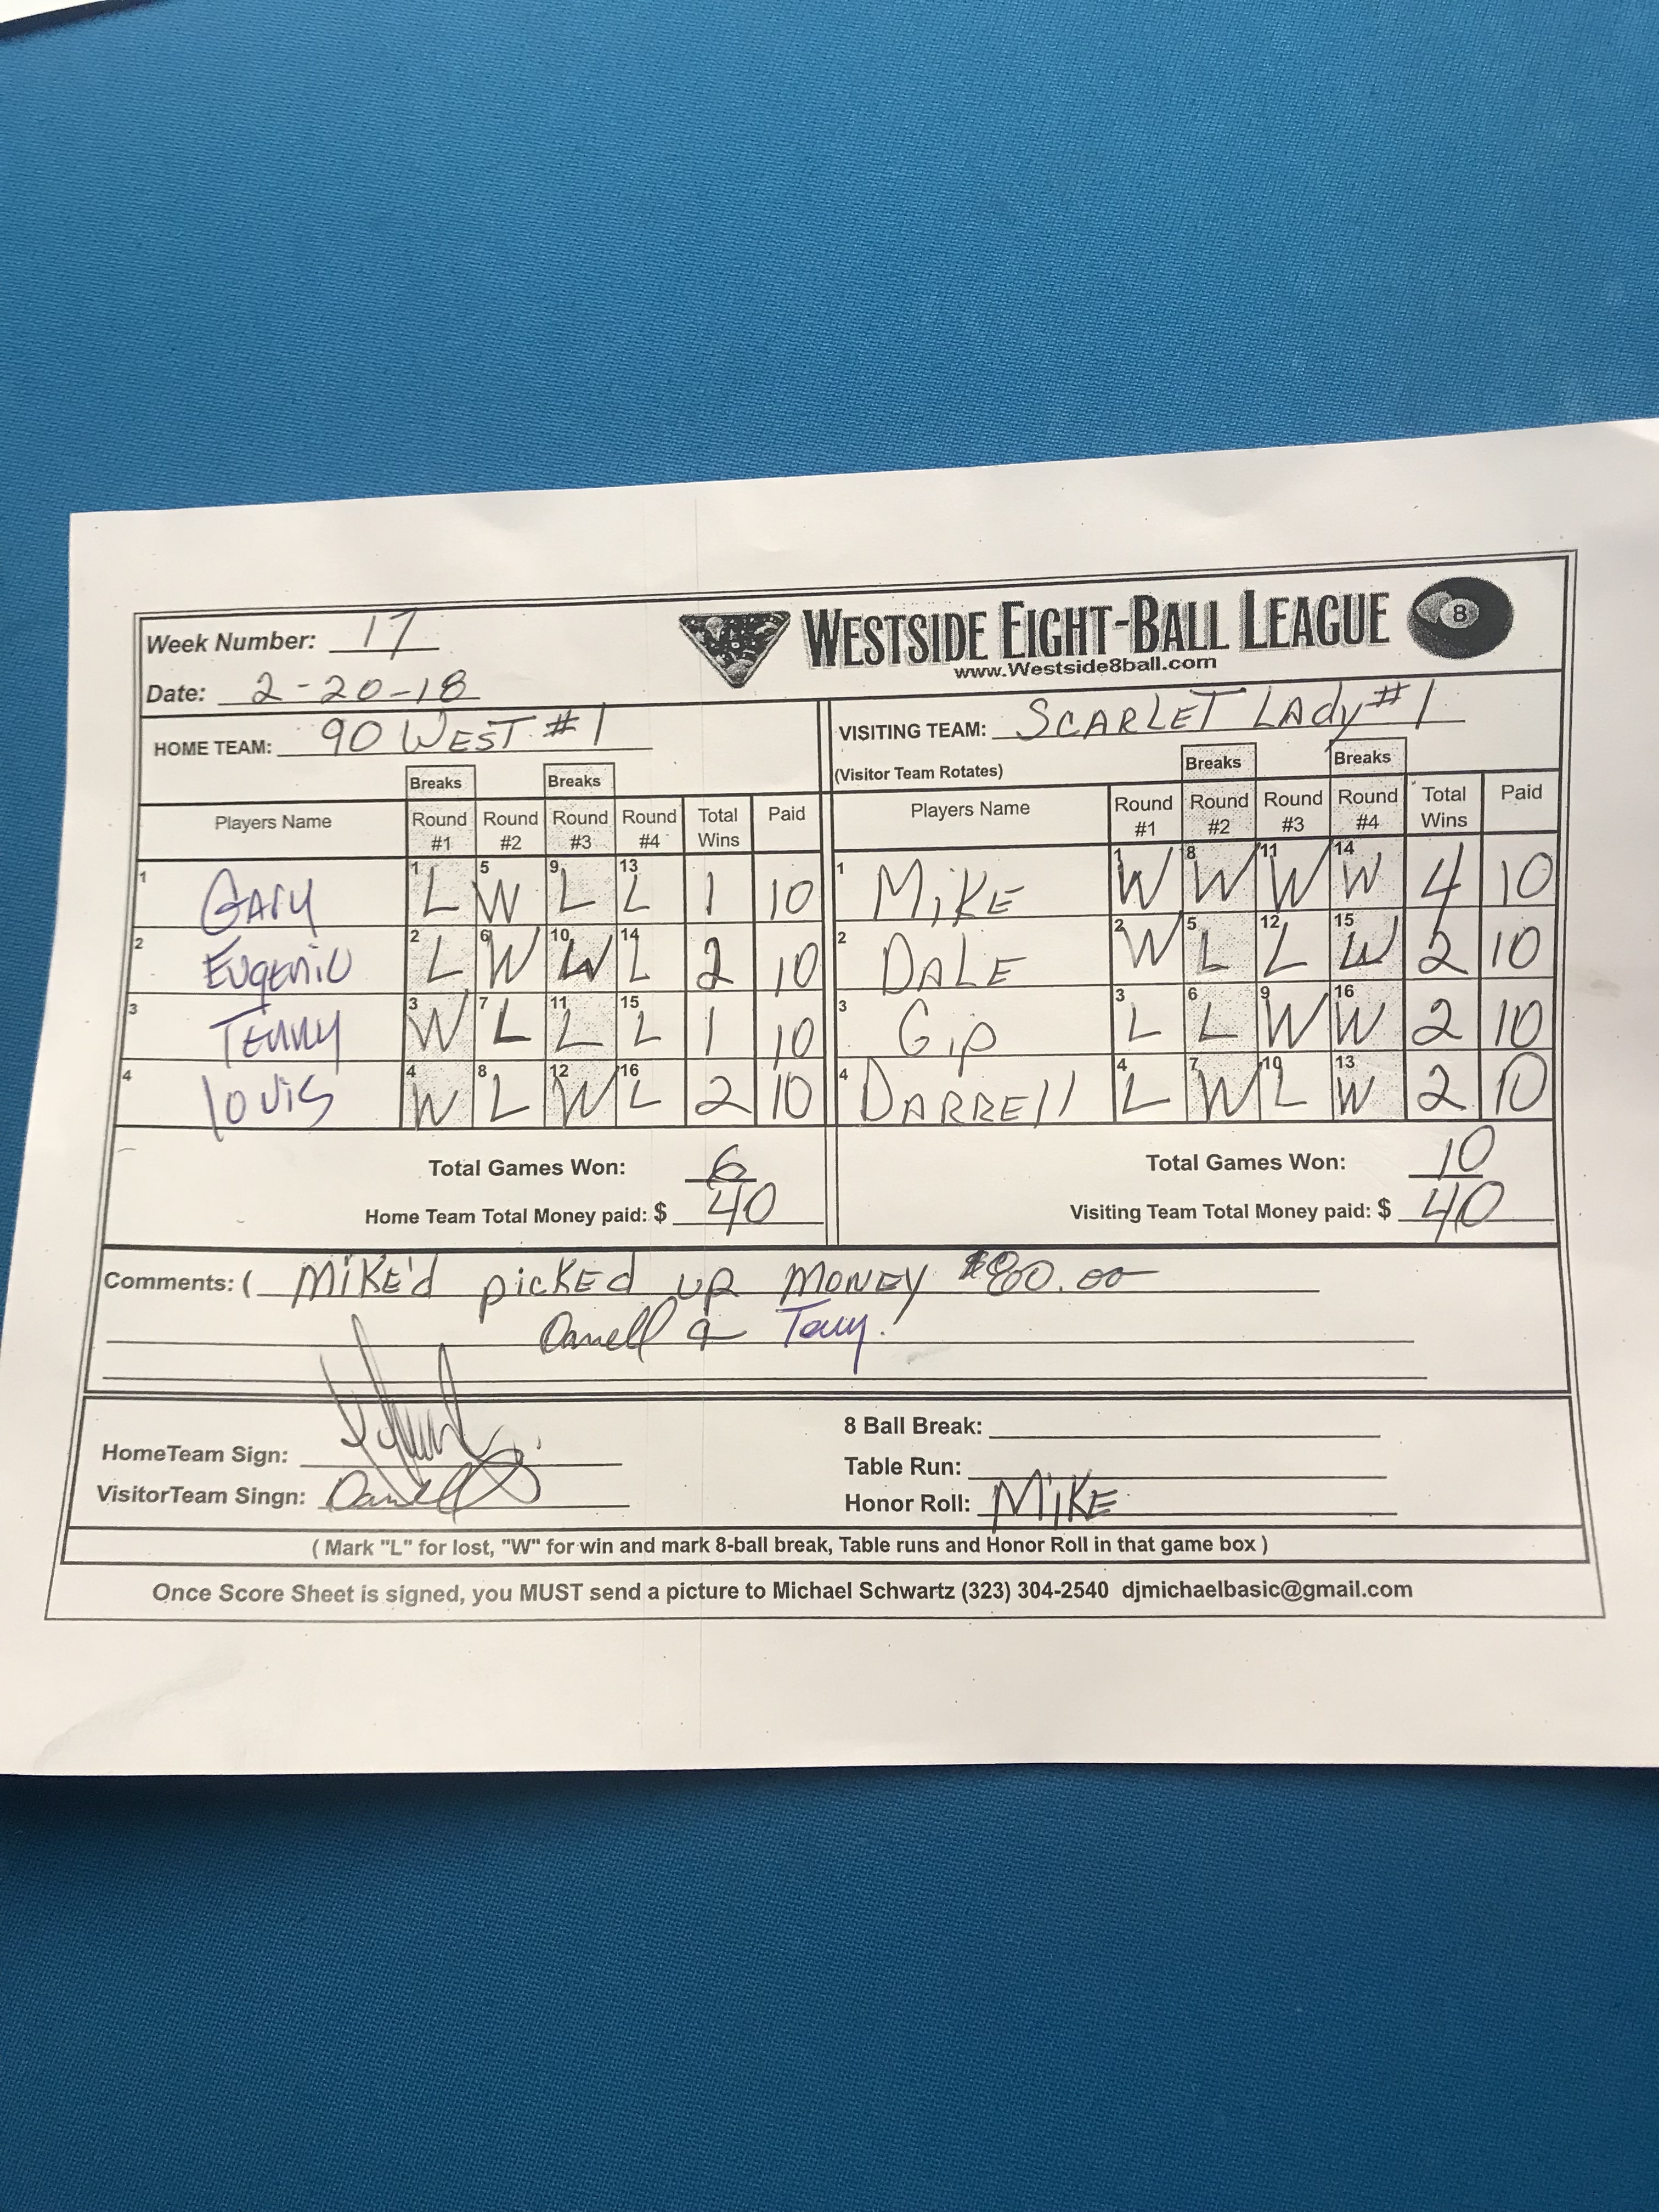 Week Number: 17
WESTSIDE EIGHT-BALL LEAGUE 8
www.Westside8ball.com
Date: 2-20-18
HOME TEAM: 90 WEST #1
VISITING TEAM: SCARLET LAdy #1
(Visitor Team Rotates)
Breaks Breaks
Breaks Breaks
Players Name Round #1 Round #2 Round #3 Round #4 Total Wins Paid
1 GARY 1 L 5 W 9 L 13 L 1 10
2 EugeniO 2 L 6 W 10 W 14 L 2 10
3 3 W 7 L 11 L 15 L 1 10
4 louis 4 W 8 L 12 W 16 L 2 10
Total Games Won: 6
Home Team Total Money paid: $ 40
Players Name Round #1 Round #2 Round #3 Round #4 Total Wins Paid
1 MiKE 1 W 8 W 11 W 14 W 4 10
2 DALE 2 W 5 L 12 L 15 W 2 10
3 Gip 3 L 6 L 9 W 16 W 2 10
4 DARRELL 4 L 7 W 10 L 13 W 2 10
Total Games Won: 10
Visiting Team Total Money paid: $ 40
Comments: ( MiKE'd picKEd up MONEY $80.00
Darrell &
HomeTeam Sign:
VisitorTeam Singn: Darrell
8 Ball Break:
Table Run:
Honor Roll: MiKE
( Mark "L" for lost, "W" for win and mark 8-ball break, Table runs and Honor Roll in that game box )
Once Score Sheet is signed, you MUST send a picture to Michael Schwartz (323) 304-2540 djmichaelbasic@gmail.com